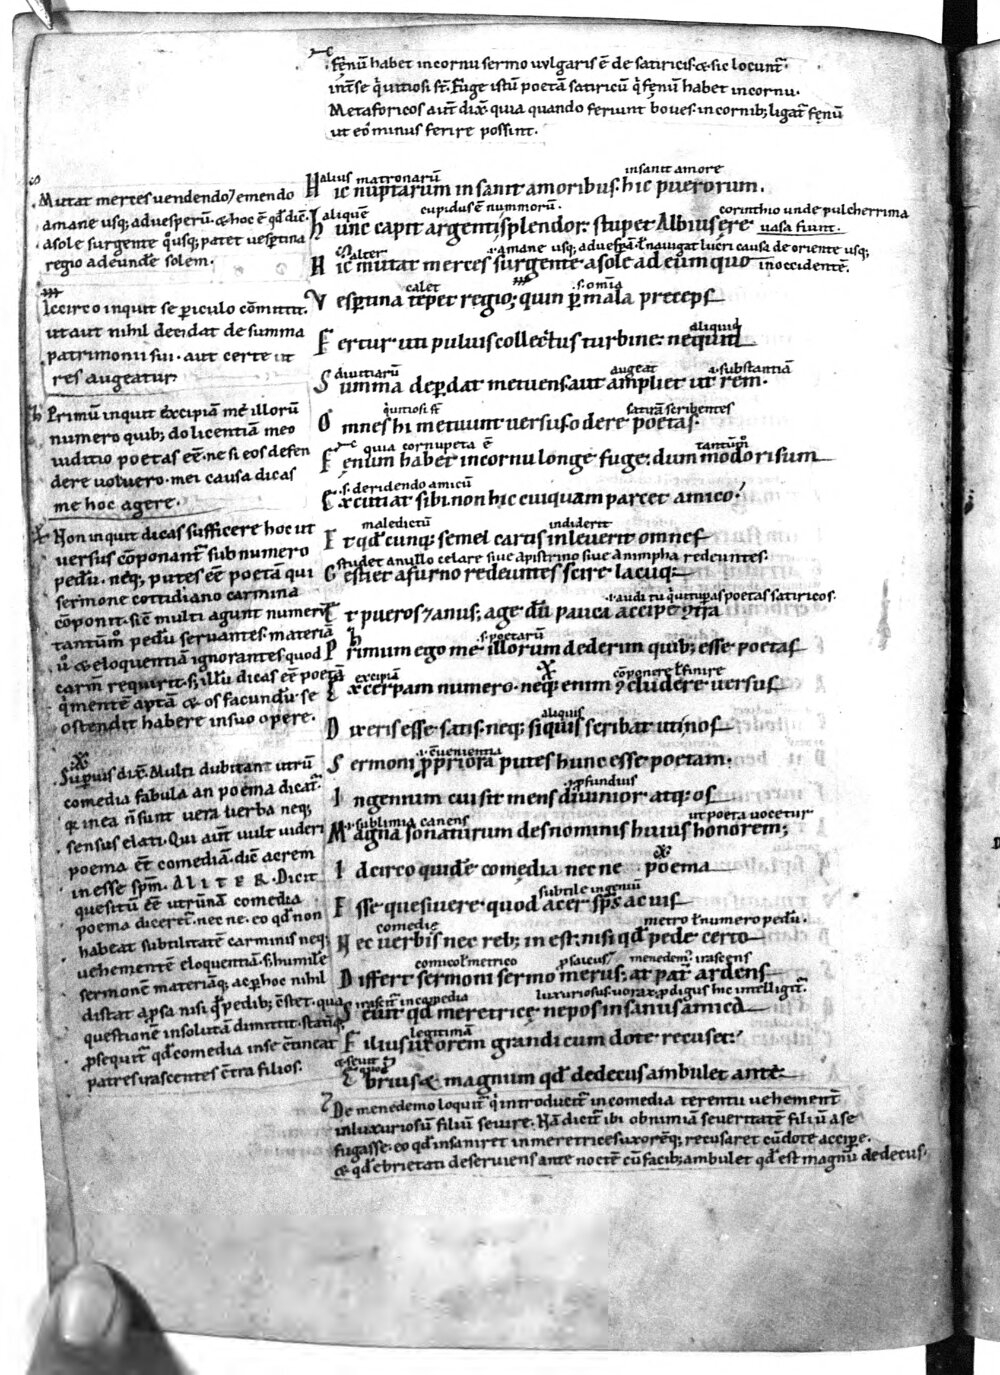 Fenū habet in cornu sermo uulgaris ē de satiricis. & sic locunt᷑
int̄ se q̇ uitiosi st̄. Fuge istū poetam satiricū q̇ fenū habet in cornu.
Metaforicos aut̄ dix̄ quia quando feriunt boues in cornib; ligat᷑ fenū
ut eō minus ferire possint.
Mutat merces uendendo ⁊ emendo
amane usq; aduesperū. & hoc ē qd̄ dic̄.
a sole surgente q°usq; patet uespertina
regio adeundē solem.
Iccirco inquit se periculo cōmittit.
ut aut nihil decidat de summa
patrimonii sui. aut certe ut
res augeatur.
Primū inquit excipiā me illorū
numero quib; do licentiā meo
iuditio poetas eē. ne si eos defen
dere uoluero. mei causa dicas
me hoc agere.
Non inquit dicas sufficere hoc ut
uersus cōponant᷑ sub numero
pedū. neq; putes eē poetā qui
sermone cottidiano carmina
cōponit. sic̄ multi agunt numerū
tantūm° pedū seruantes. materiā
u° & eloquentiā ignorantes quod
carm̄ requirit. s; illū dicas eē poetā
q̇ mentē aptā & os facundū se
ostendit habere in suo opere.
Supuis dix̄. Multi dubitant utrū
comedia fabula an poema dicat᷑.
q; in ea n̄ sunt uera uerba neq;
sensus elati. Qui aut̄ uult uideri
poema eē comediā. dic̄ acrem
inesse spm̄. ALITER. Dicit
quesitū eē utrūnā comedia
poema diceret᷑. nec ne. eo qd̄ non
habeat subtilitatē carminis neq;
uehementē eloquentiā. s; humilē
sermonē materiāq; ac p hoc nihil
distat a psa nisi q̇ pedib; c̄stet. quā
questionē insolutā dimittit. statīq;
psequit᷑ qd̄ comedia in se c̄tineat
patres irascentes c̄tra filios.
alius matronarū insanit amore
Hic nuptarum insanit amoribus. hic puerorum.
aliquē cupidus ē nummorū. corinthio unde pulcherrima
Hunc capit argenti splendor. stupet Albius ere uasa fiunt.
alter .i. amane usq; aduesperā ł nauigat lucri causa de oriente usq;
Hic mutat merces surgente a sole ad eum quo in occidentē.
calet .s. omīa
Vespertina tepet regio; quin p mala preceps
aliquid
Fertur uti puluis collectus turbine. nequid
diuitiarū augeat a substantiā
Summa deperdat metuens aut ampliet ut rem.
q̇ uitiosi st̄ satirā scribentes
Omnes hi metuunt uersus odere poetas.
quia cornupeta ē tantūm°
Fenum habet in cornu longe fuge. dummodo risum
.s. deridendo amicū
Excutiat sibi. non hic cuiquam parcet amico.
maledictū indiderit
Et qd̄cunq; semel cartis inleuerit omnes
studet a nullo celare siue a pistrino siue a nimpha redeuntes.
Gestiet a furno redeuntes scire lacuq;
.i. audi tu q̇ uituperas poetas satiricos.
Et pueros ⁊ anus. age. dū pauca accipe ꝯtra
.s. poetarū
Primum ego me illorum dederim quib; esse poetas
excipiā cōponere ł finire
Excerpam numero. neq; enim ꝯcludere uersus
aliquis
Dixeris esse satis. neq; siquis scribat uti nos
.i. c̄uenientia
Sermoni ppriora putes hunc esse poetam.
.i. pfundius
Ingenium cui sit mens diuinior atq; os
.i. sublimia canens ut poeta uocetur
Magna sonaturum des nominis huius honorem;
Idcirco quidē comedia nec ne poema
subtile ingeniū
Esse quesiuere quod acer sps̄ ac uis
comedie metro ł numero pedū.
Nec uerbis nec reb; inest. nisi qd̄ pede certo
comico ł metrico psaicus menedem᷒ irascens
Differt sermoni sermo merus. at pat᷑ ardens
irascit᷑ in comedia luxuriosus. uorax. pdigus hic intelligit᷑.
Seuit qd̄ meretrice nepos insanus amica
legitimā
Filius uxorem grandi cum dote recuset.
& seuit quod
Ebrius & magnum qd̄ dedecus ambulet ante.
De menedemo loquit᷑ q̇ introducit᷑ in comedia terentii uehement᷑
in luxuriosū filiū seuire. Nā dicit᷑ ibi ob nimiā seueritatē filiū a se
fugasse. eo qd̄ insaniret in meretrices uxorēq; recusaret cū dote accipe.
& qd̄ ebrietati deseruiens ante noctē cū facib; ambulet qd̄ est magnū dedecus.